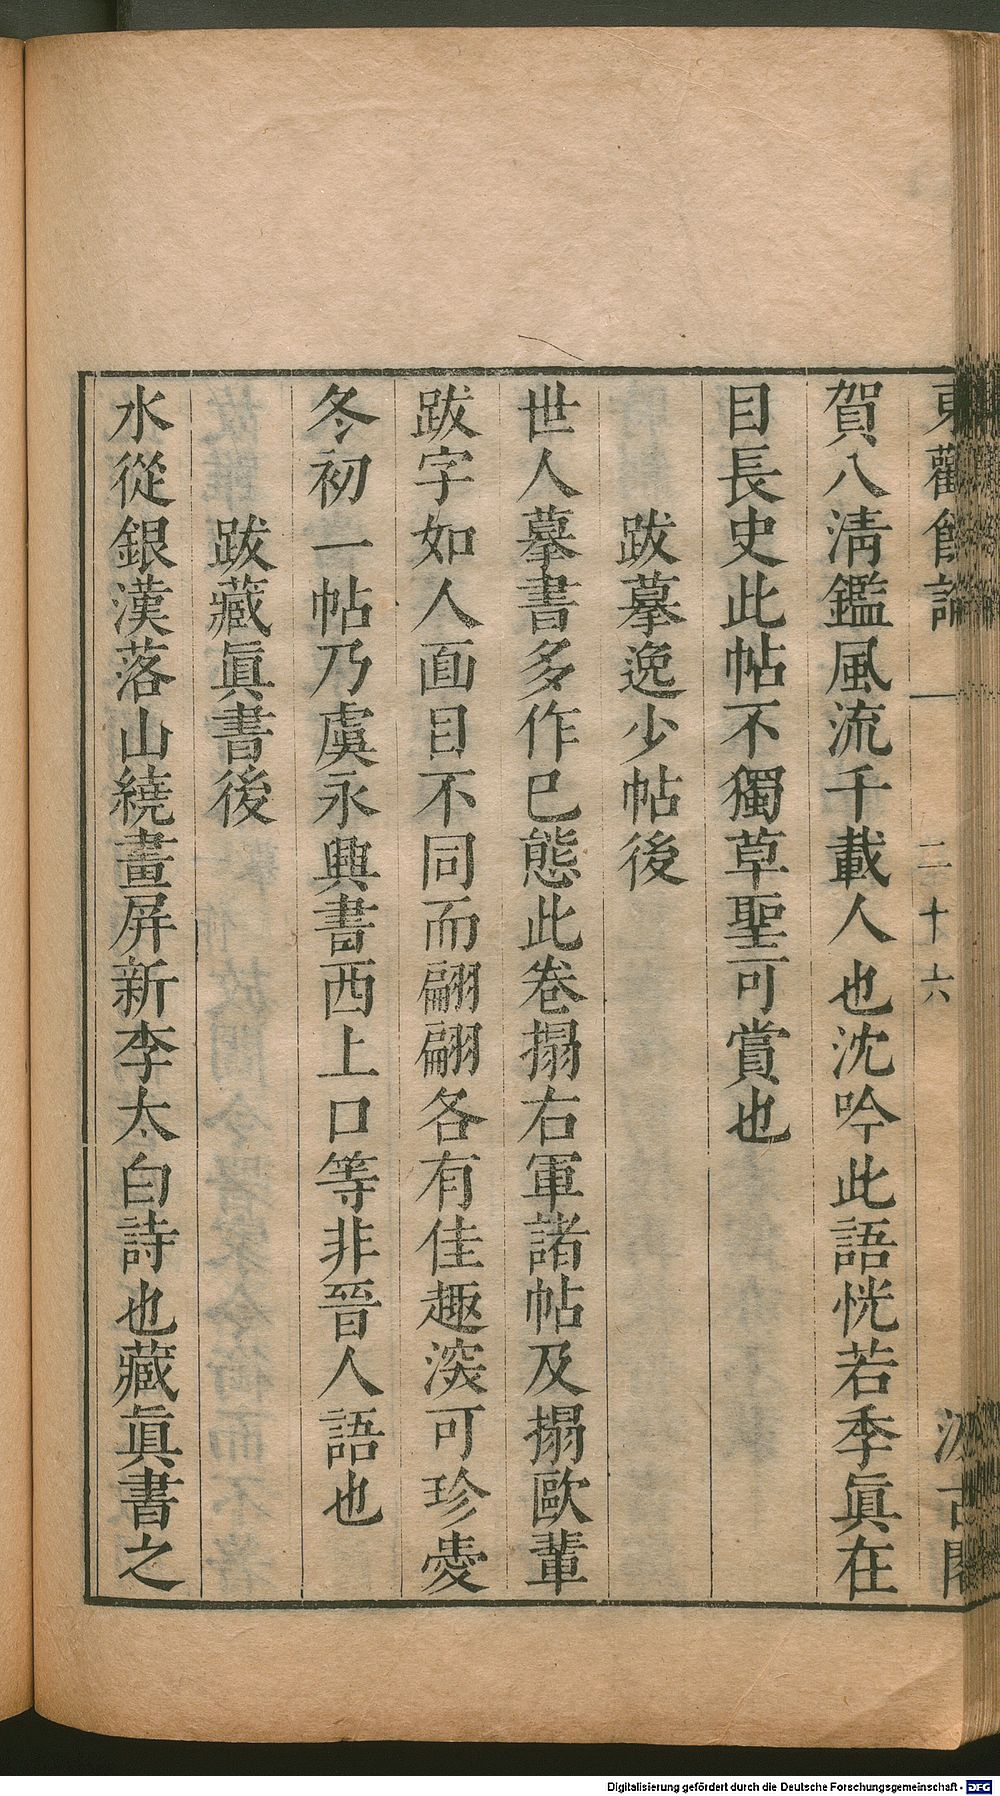 東觀餘論
一
二十六
汲古閣
賀八淸鑑風流千載人也沈吟此語恍若季眞在
目長史此帖不獨草聖可賞也
跋摹逸少帖後
世人摹書多作已態此卷搨右軍諸帖及搨歐輩
跋字如人面目不同而翩翩各有佳趣深可珍愛
冬初一帖乃虞永興書西上口等非晉人語也
跋藏眞書後
水從銀漢落山繞畫屏新李太白詩也藏眞書之
Digitalisierung gefördert durch die Deutsche Forschungsgemeinschaft - DFG